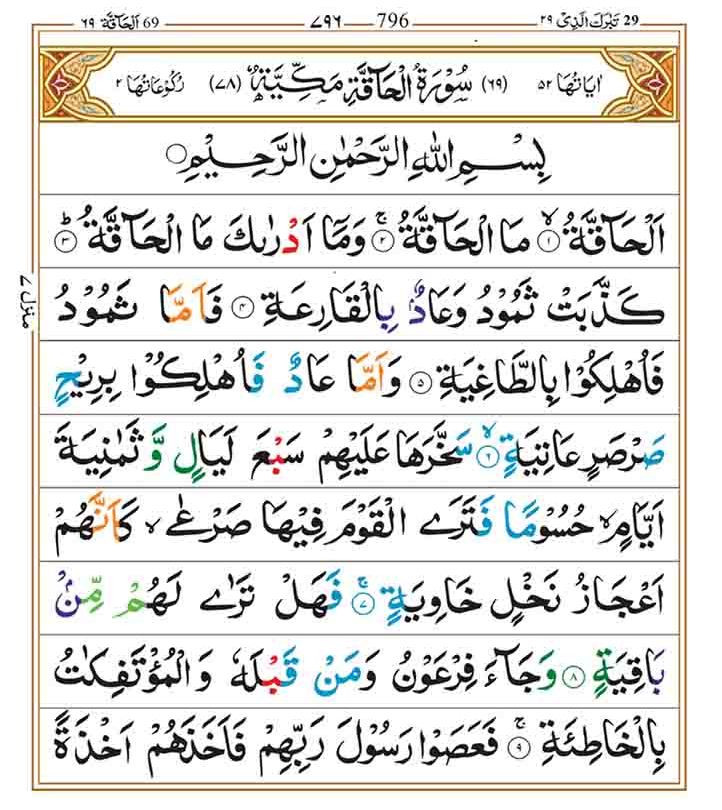 29 تبٰرك الذى ٢٩ 796 ٧٩٦ 69 الحاقة ٦٩
اٰیاتها ٥٢ (٦٩) سُوْرَةُ الْحَآقَّةِ مَكِّيَّةٌ (٧٨) ركوعاتها ٢
بِسْمِ اللهِ الرَّحْمٰنِ الرَّحِيْمِ
اَلْحَآقَّةُ ۙ ١ مَا الْحَآقَّةُ ۚ ٢ وَمَاۤ اَدْرٰىكَ مَا الْحَآقَّةُ ؕ ٣
كَذَّبَتْ ثَمُوْدُ وَعَادٌۢ بِالْقَارِعَةِ ٤ فَاَمَّا ثَمُوْدُ
فَاُهْلِكُوْا بِالطَّاغِيَةِ ٥ وَاَمَّا عَادٌ فَاُهْلِكُوْا بِرِيْحٍ
صَرْصَرٍ عَاتِيَةٍ ۙ ٦ سَخَّرَهَا عَلَيْهِمْ سَبْعَ لَيَالٍ وَّ ثَمٰنِيَةَ
اَيَّامٍ ۙ حُسُوْمًا فَتَرَى الْقَوْمَ فِيْهَا صَرْعٰى ۙ كَاَنَّهُمْ
اَعْجَازُ نَخْلٍ خَاوِيَةٍ ۚ ٧ فَهَلْ تَرٰى لَهُمْ مِّنْۢ
بَاقِيَةٍ ٨ وَجَآءَ فِرْعَوْنُ وَمَنْ قَبْلَهٗ وَالْمُؤْتَفِكٰتُ
بِالْخَاطِئَةِ ۚ ٩ فَعَصَوْا رَسُوْلَ رَبِّهِمْ فَاَخَذَهُمْ اَخْذَةً
منزل ٧